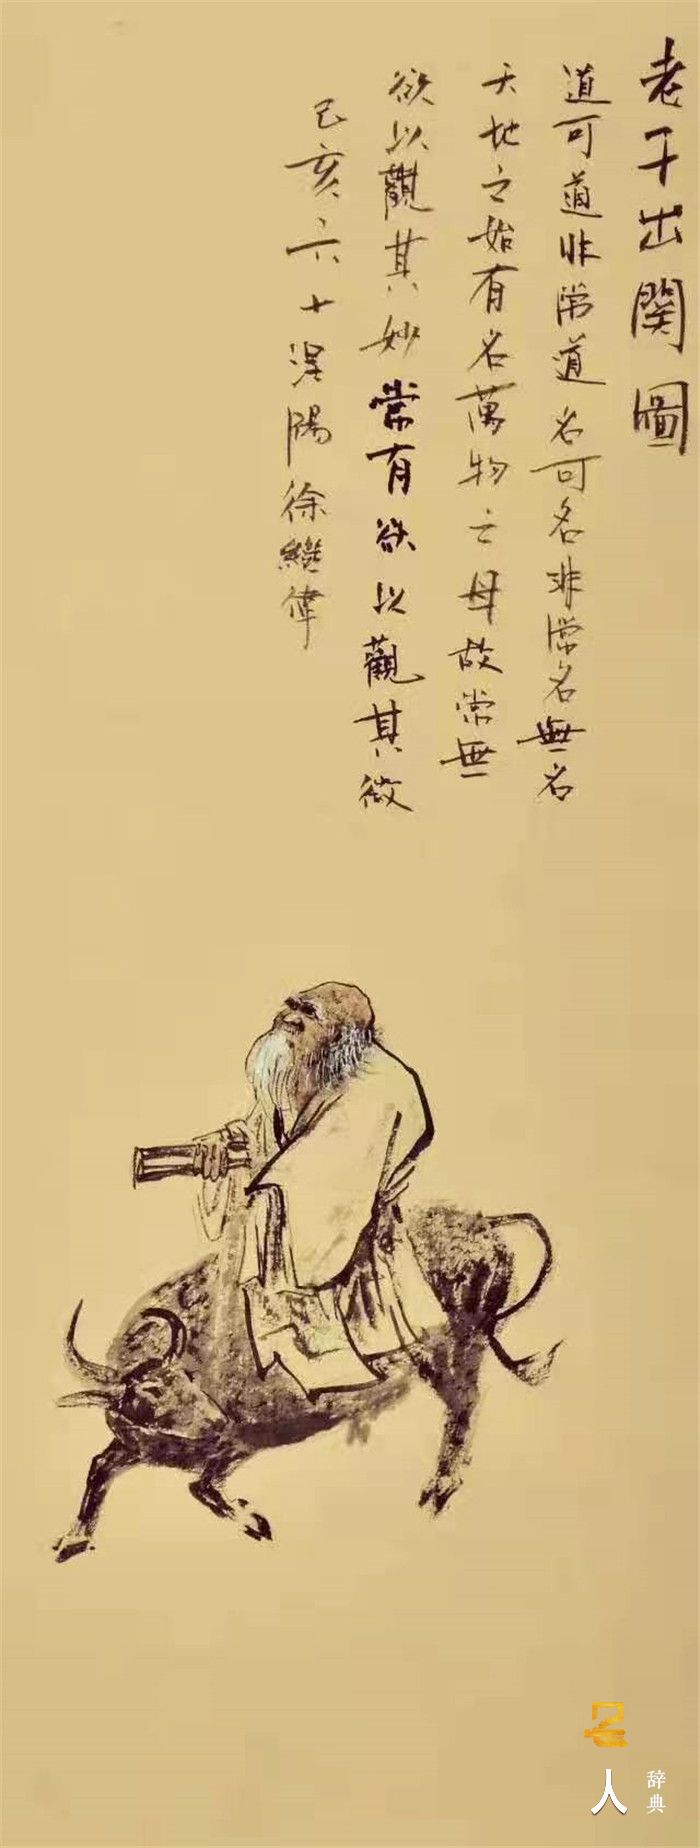 老子出關圖
道可道非常道名可名非常名無名
天地之始有名萬物之母故常無
欲以觀其妙常有欲以觀其徼
己亥六十陽徐繼偉
名人
辞典